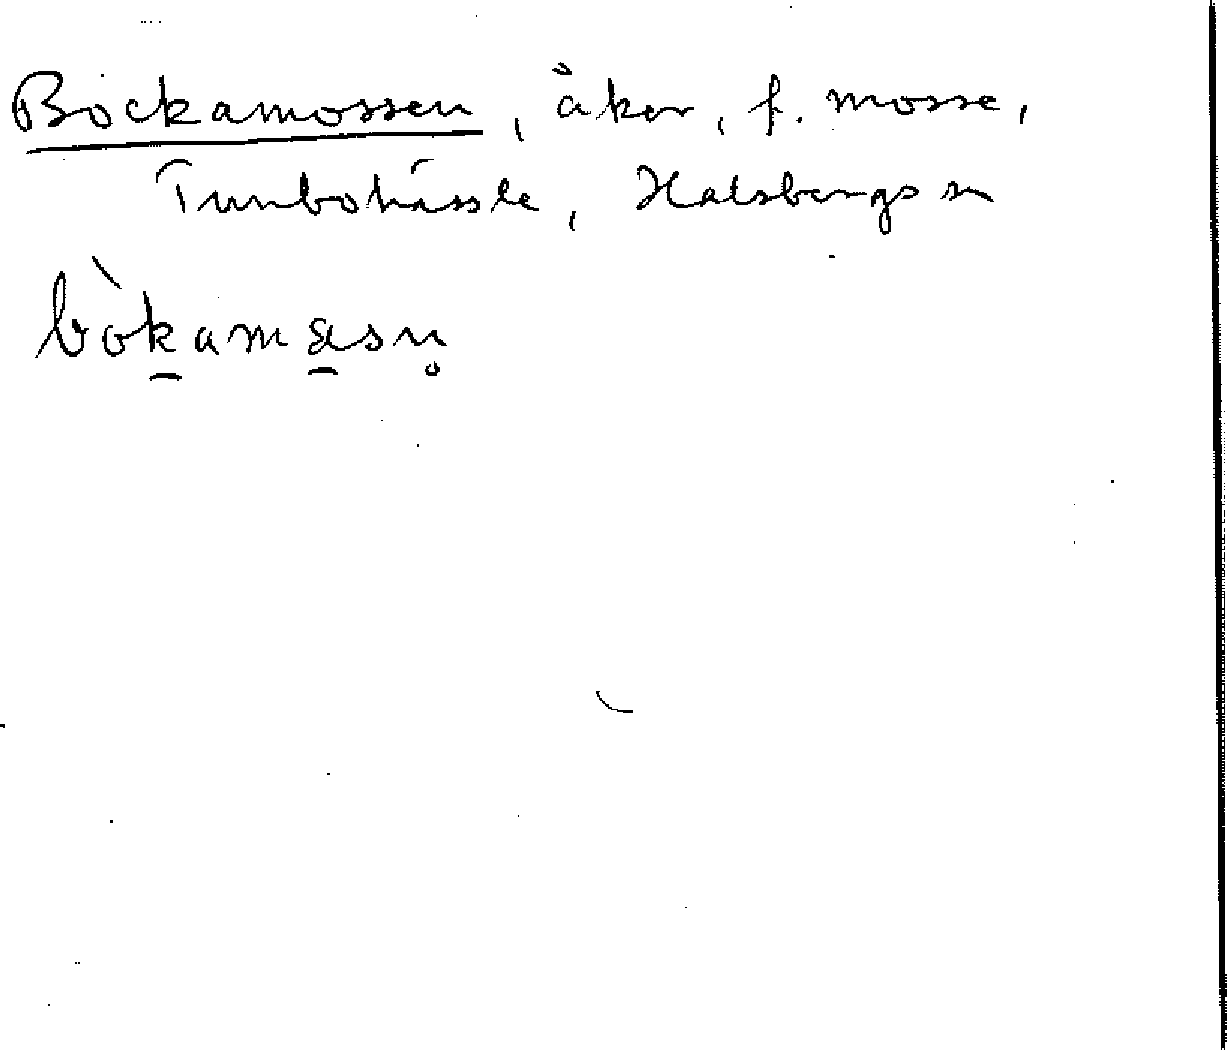 Bockamossen, åker, f. mosse,
Tunbohässle, Hatsbergs sn
bòk̠amas̠n̥